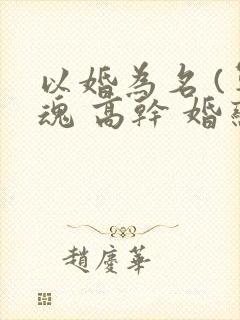 以婚為名(
魂 高幹 婚
趙慶華